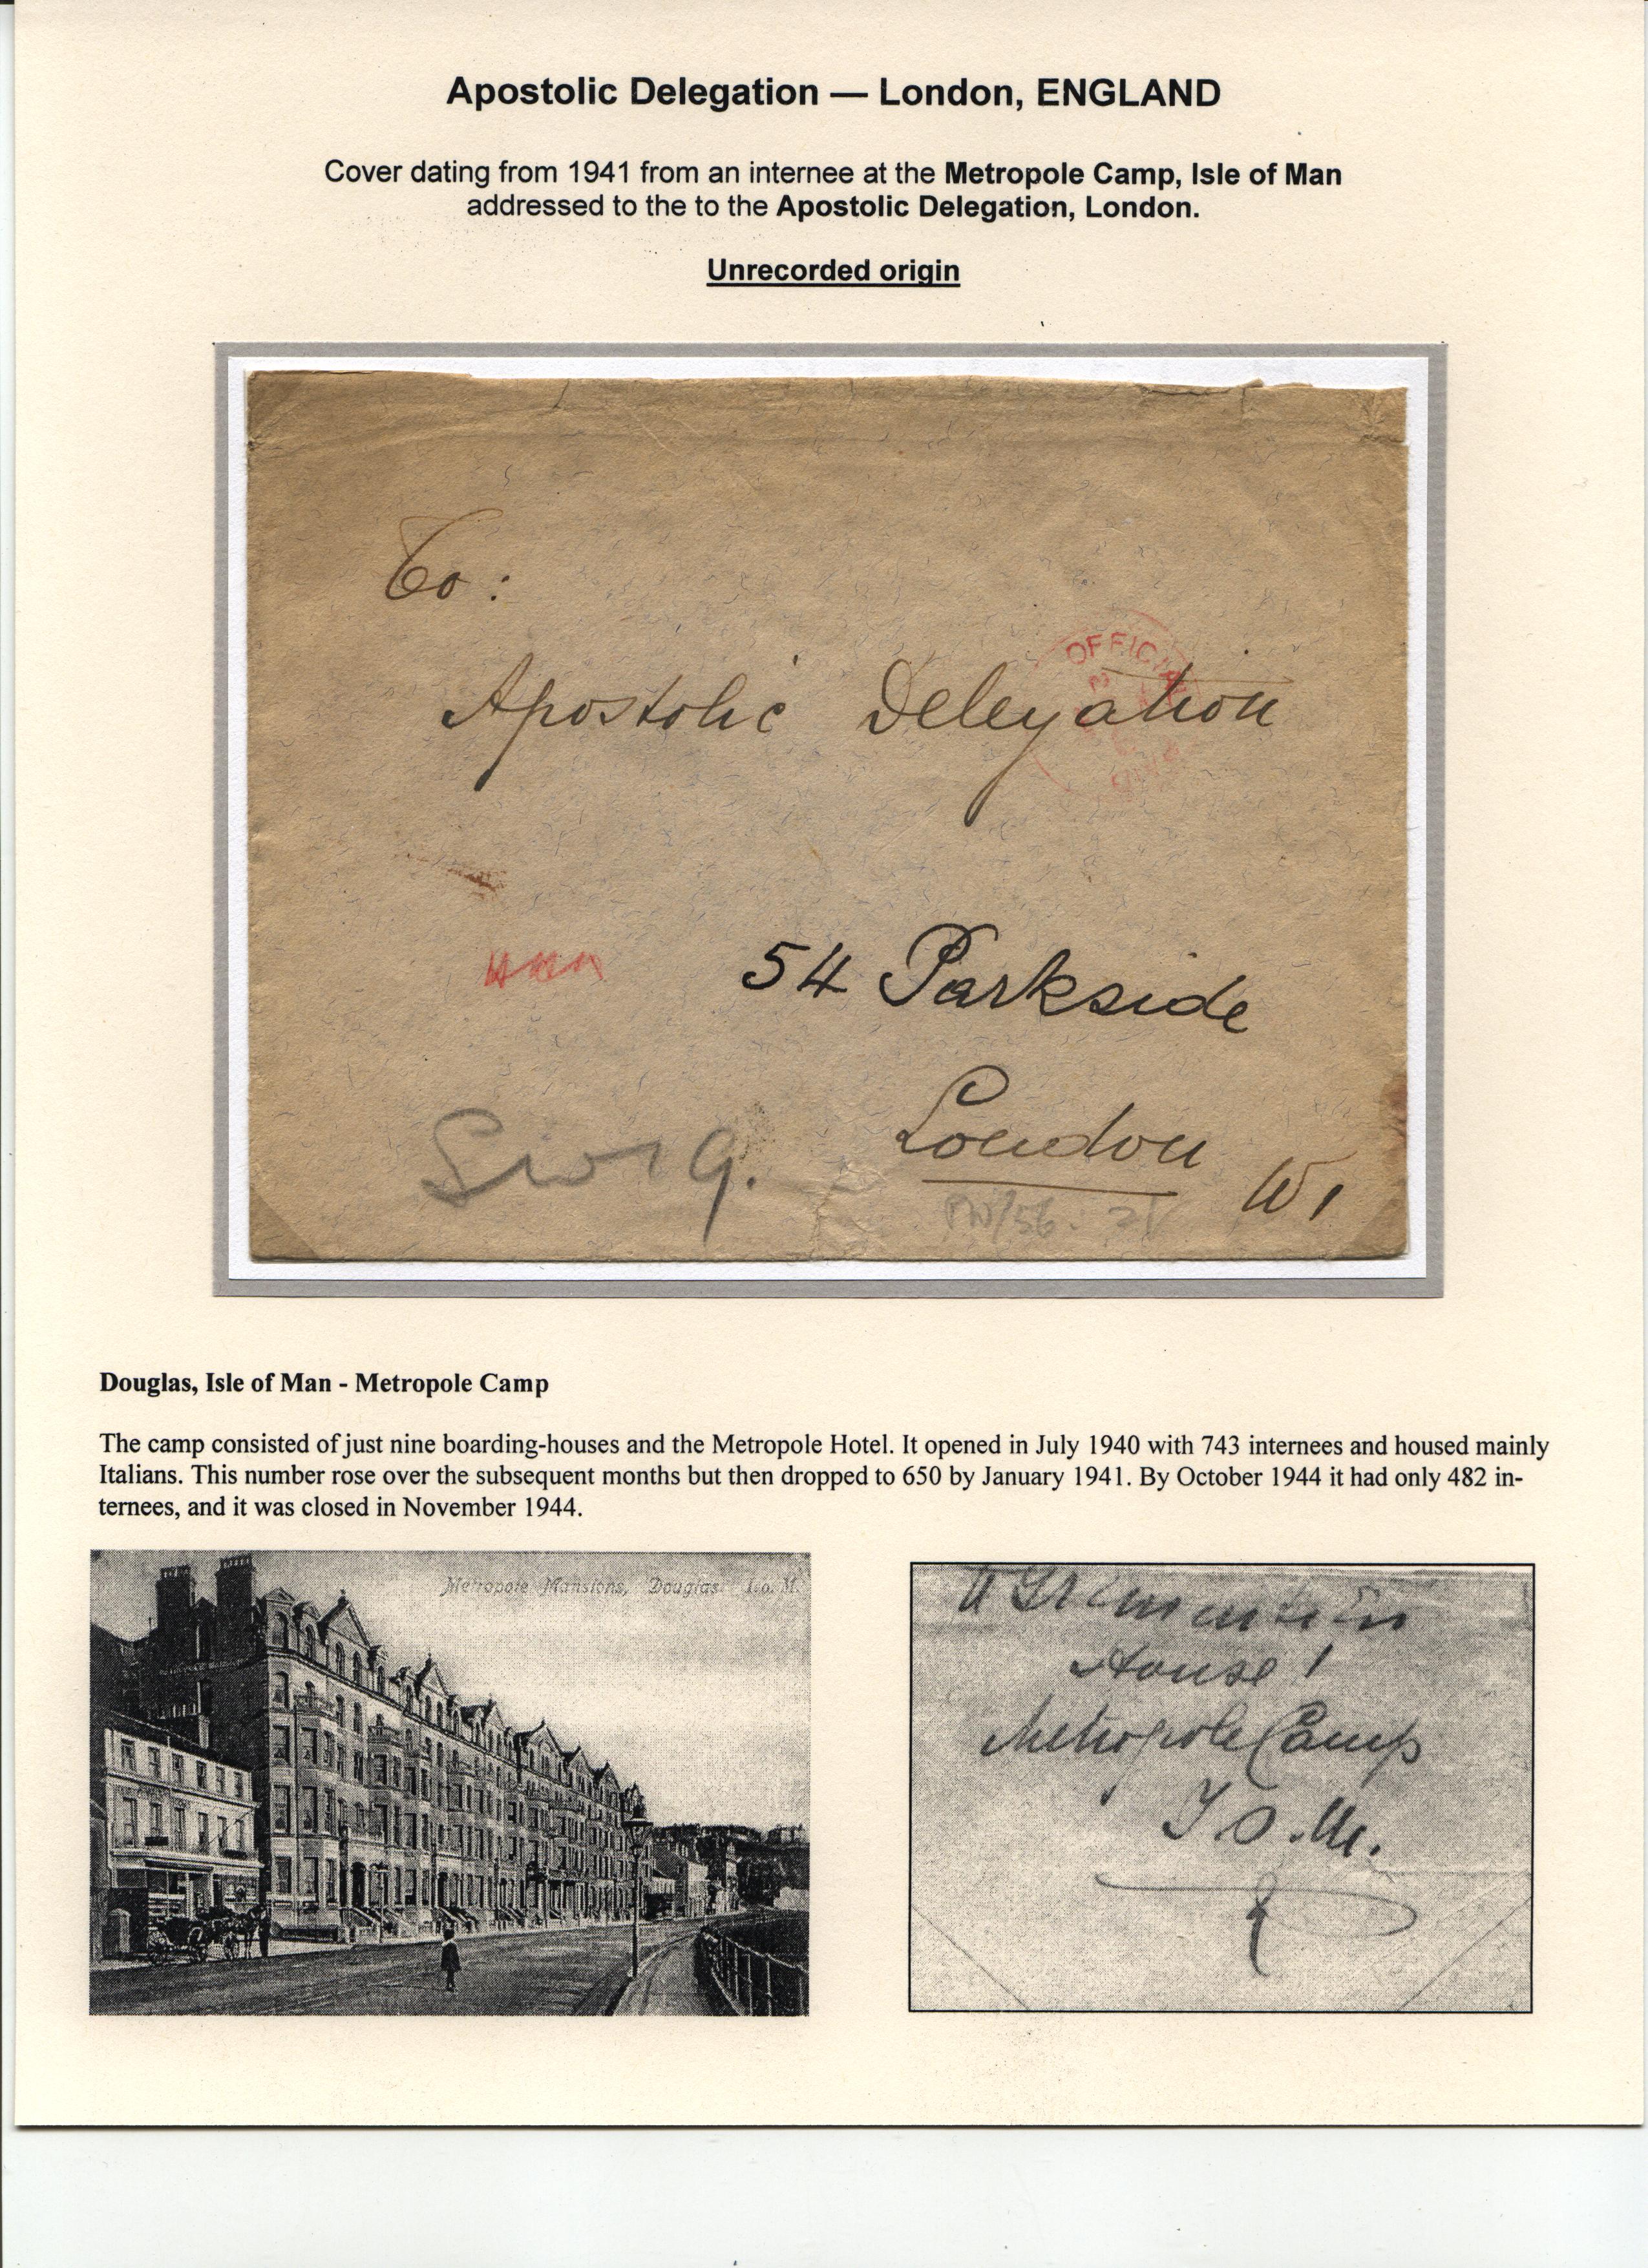 Apostolic Delegation — London, ENGLAND
Cover dating from 1941 from an internee at the Metropole Camp, Isle of Man
addressed to the to the Apostolic Delegation, London.
Unrecorded origin
To:
OFFICIAL
Apostolic Delegation
54 Parkside
London
W1
Douglas, Isle of Man - Metropole Camp
The camp consisted of just nine boarding-houses and the Metropole Hotel. It opened in July 1940 with 743 internees and housed mainly
Italians. This number rose over the subsequent months but then dropped to 650 by January 1941. By October 1944 it had only 482 in-
ternees, and it was closed in November 1944.
Metropole Mansions, Douglas I.o.M.
House 1
Metropole Camp
I.O.M.